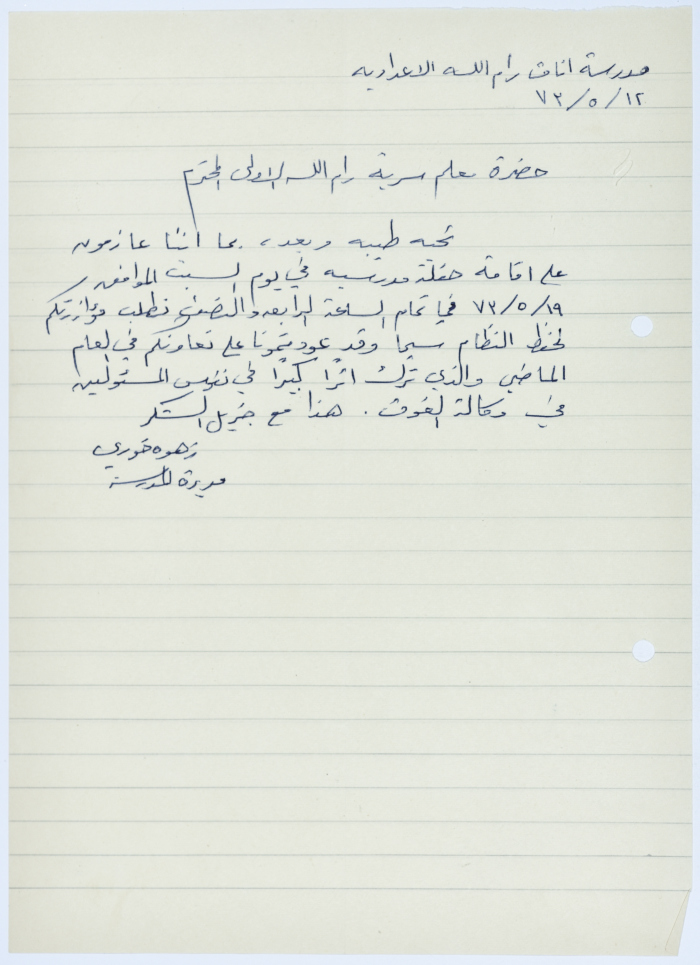 مدرسة اناث رام الله الاعدادية
٧٣/٥/١٢
حضرة معلم سرية رام الله الاولى المحترم
تحيه طيبه وبعد، بما اننا عازمون
على اقامة حفلة مدرسيه في يوم السبت الموافق
٧٣/٥/١٩ في تمام الساعة الرابعه والنصف نطلب مؤازرتكم
لحفظ النظام سيما وقد عودتمونا على تعاونكم في العام
الماضي والذي ترك اثرًا كبيرًا في نفوس المسئولين
في وكالة الغوث. هذا مع جزيل الشكر
زهوه خوري
مديرة المدرسة